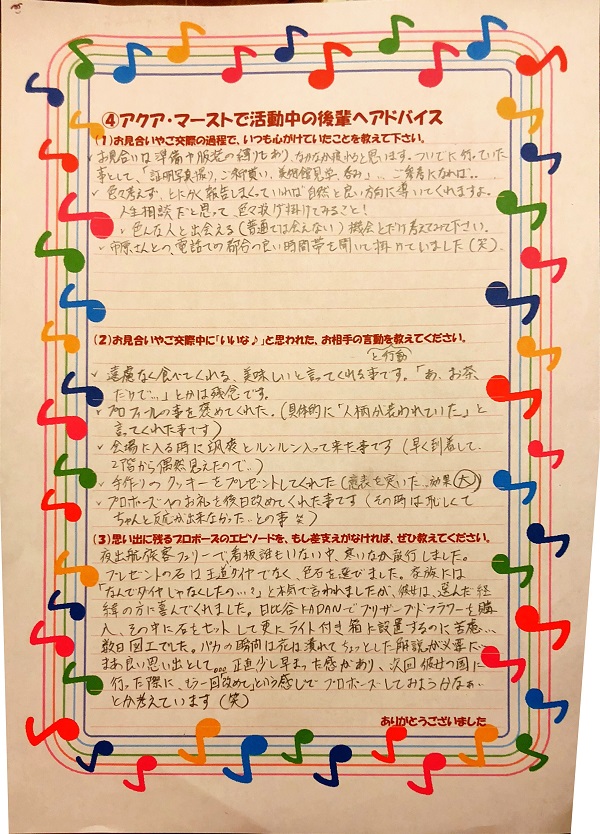 ④アクア・マーストで活動中の後輩へアドバイス
(1)お見合いやご交際の過程で、いつも心がけていたことを教えて下さい。
✓お見合いは準備や服装の縛りもあり、なかなか疲れると思います。ついでに行っていた
事として、「証明写真撮り、ご褒美買い、美術館見学、呑み」…ご参考になれば…
✓色々考えず、とにかく報告しまくっていれば自然と良い方向に導いてくれますよ。
人生相談だと思って、色々投げ掛けてみること!
✓色んな人と出会える(普通では会えない)機会とだけ考えてみて下さい。
✓中原さんとの、電話での都合の良い時間帯を聞いて掛けていました(笑)
(2)お見合いやご交際中に「いいな♪」と思われた、お相手の言動を教えてください。
と行動
✓遠慮なく食べてくれる、美味しいと言ってくれる事です。「あ、お茶
だけで…」とかは残念です。
✓プロフィールの事を褒めてくれた。(具体的に「人柄が表われていた」と
言ってくれた事です)
✓会場に入る時に颯爽とルンルン入って来た事です(早く到着して、
2階から偶然見えたので…)
✓手作りのクッキーをプレゼントしてくれた(意表を突いた…効果大)
✓プロポーズ中のお礼を後日改めてくれた事です(その時は恥しくて
ちゃんと反応が出来なかった…との事 笑)
(3)思い出に残るプロポーズのエピソードを、もし差支えがなければ、ぜひ教えてください。
夜出航旅客フェリーで、看板誰もいない中、寒いなか敢行しました。
プレゼントの石は王道ダイヤでなく、色石を選びました。家族には
「なんでダイヤじゃなくしたの…?」と本気で言われましたが、彼女は、選んだ経
緯の方に喜んでくれました。日比谷KADANでプリザーブドフラワーを購
入、その中に石をセットして更にライト付き箱に設置するのに苦慮…
数日図工でした。パカの瞬間は花は潰れてちょっとした解説が必要に…
まあ良い思い出として…。正直少し早まった感があり、次回彼女の国に
行った際に、もう一回改めて」という感じでプロポーズしてみようかなぁ…
とか考えています(笑)
ありがとうございました